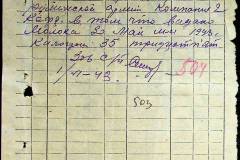 румынской Армии Компания 2
Кафр. в том что выдано
Молока за Май м-ц 1943г.
Килограм 35 тридцать пят.
Зав с/м
1/VI-43. 504
503